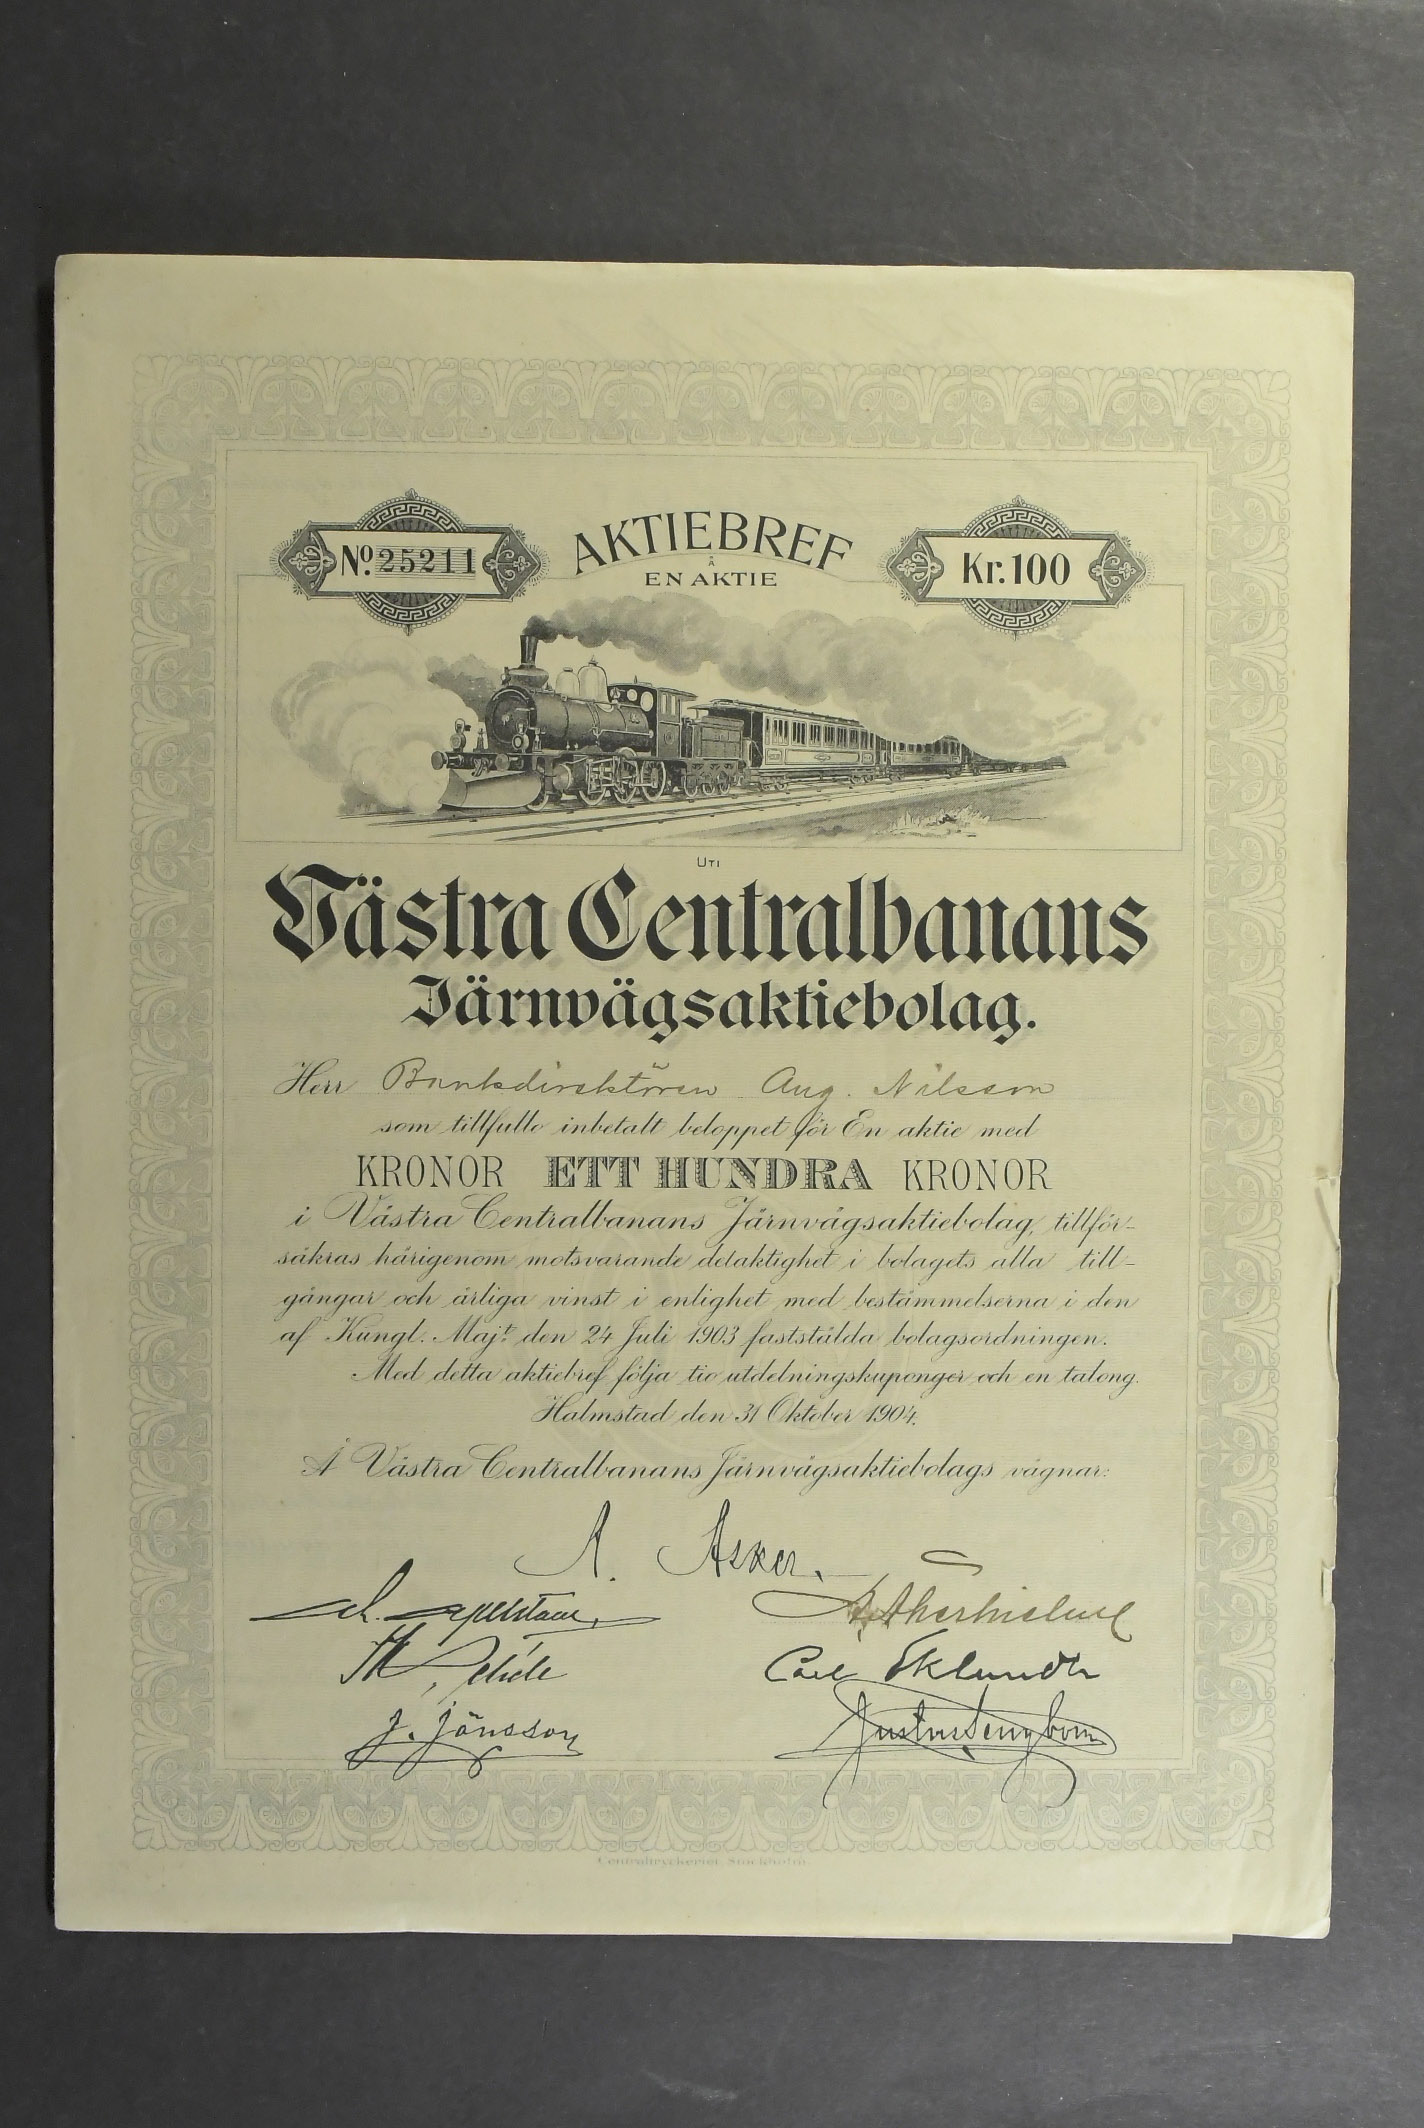 No. 25211
AKTIEBREF
Å
EN AKTIE
Kr. 100
UTI
Västra Centralbanans
Järnvägsaktiebolag.
Herr Bankdirektören Aug. Nilsson
som tillfullo inbetalt beloppet för En aktie med
KRONOR ETT HUNDRA KRONOR
i Västra Centralbanans Järnvägsaktiebolag, tillför-
säkras härigenom motsvarande delaktighet i bolagets alla till-
gångar och årliga vinst i enlighet med bestämmelserna i den
af Kungl. Maj:t den 24 Juli 1903 fastställda bolagsordningen.
Med detta aktiebref följa tio utdelningskuponger och en talong.
Halmstad den 31 Oktober 1904.
Å Västra Centralbanans Järnvägsaktiebolags vägnar:
A. Asker.
Carl Eklundh
J. Jönsson
Centraltryckeriet, Stockholm.